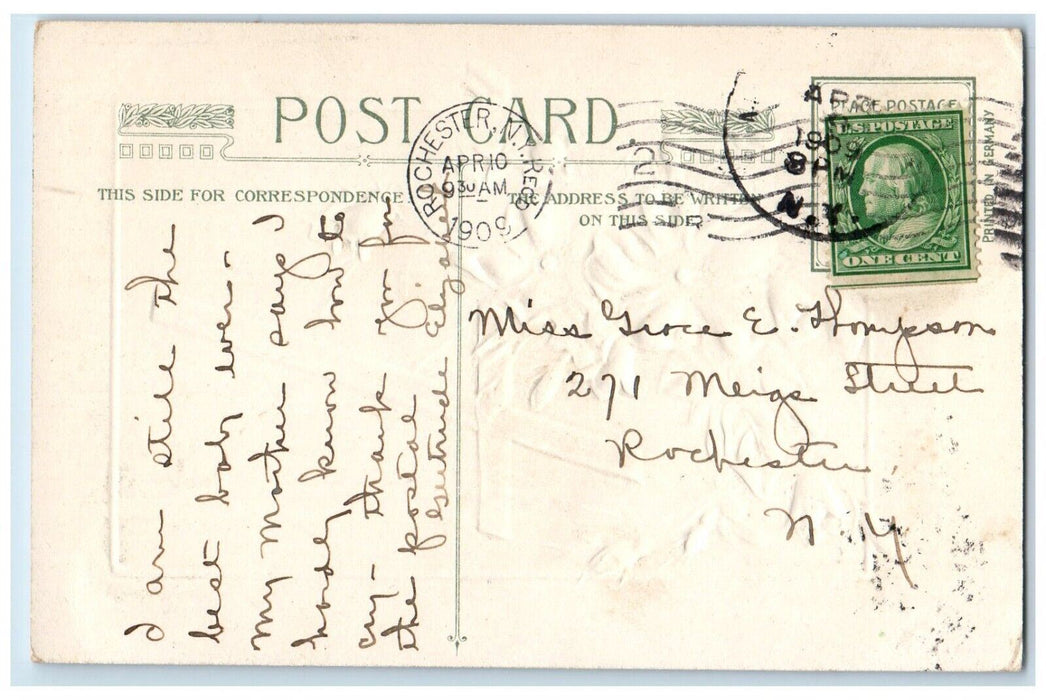 POST CARD
THIS SIDE FOR CORRESPONDENCE
THE ADDRESS TO BE WRITTEN
ON THIS SIDE
PLACE POSTAGE
PRINTED IN GERMANY
U.S. POSTAGE
ONE CENT
ROCHESTER, N.Y. REC'D
APR 10
930 AM
1909
APR
1909
N.Y.
I am still the
best baby ever –
My Mother says I
hardly know how to
cry – thank you for
the postal
Gertrude
Miss Grace E. Thompson
271 Meigs Street
Rochester,
N. Y